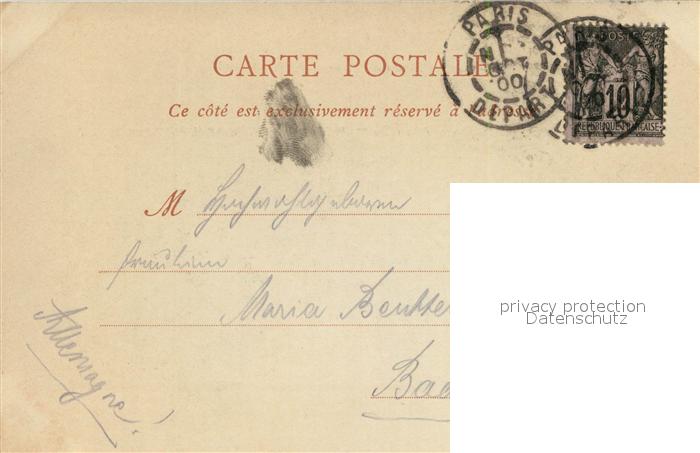 CARTE POSTALE
Ce côté est exclusivement réservé à l'adresse
PARIS
OCT
00
DEPART
PA
POSTES
10
REPUBLIQUE FRANÇAISE
M Hochwohlgeboren
Fräulein
Maria
Allemagne!
privacy protection
Datenschutz